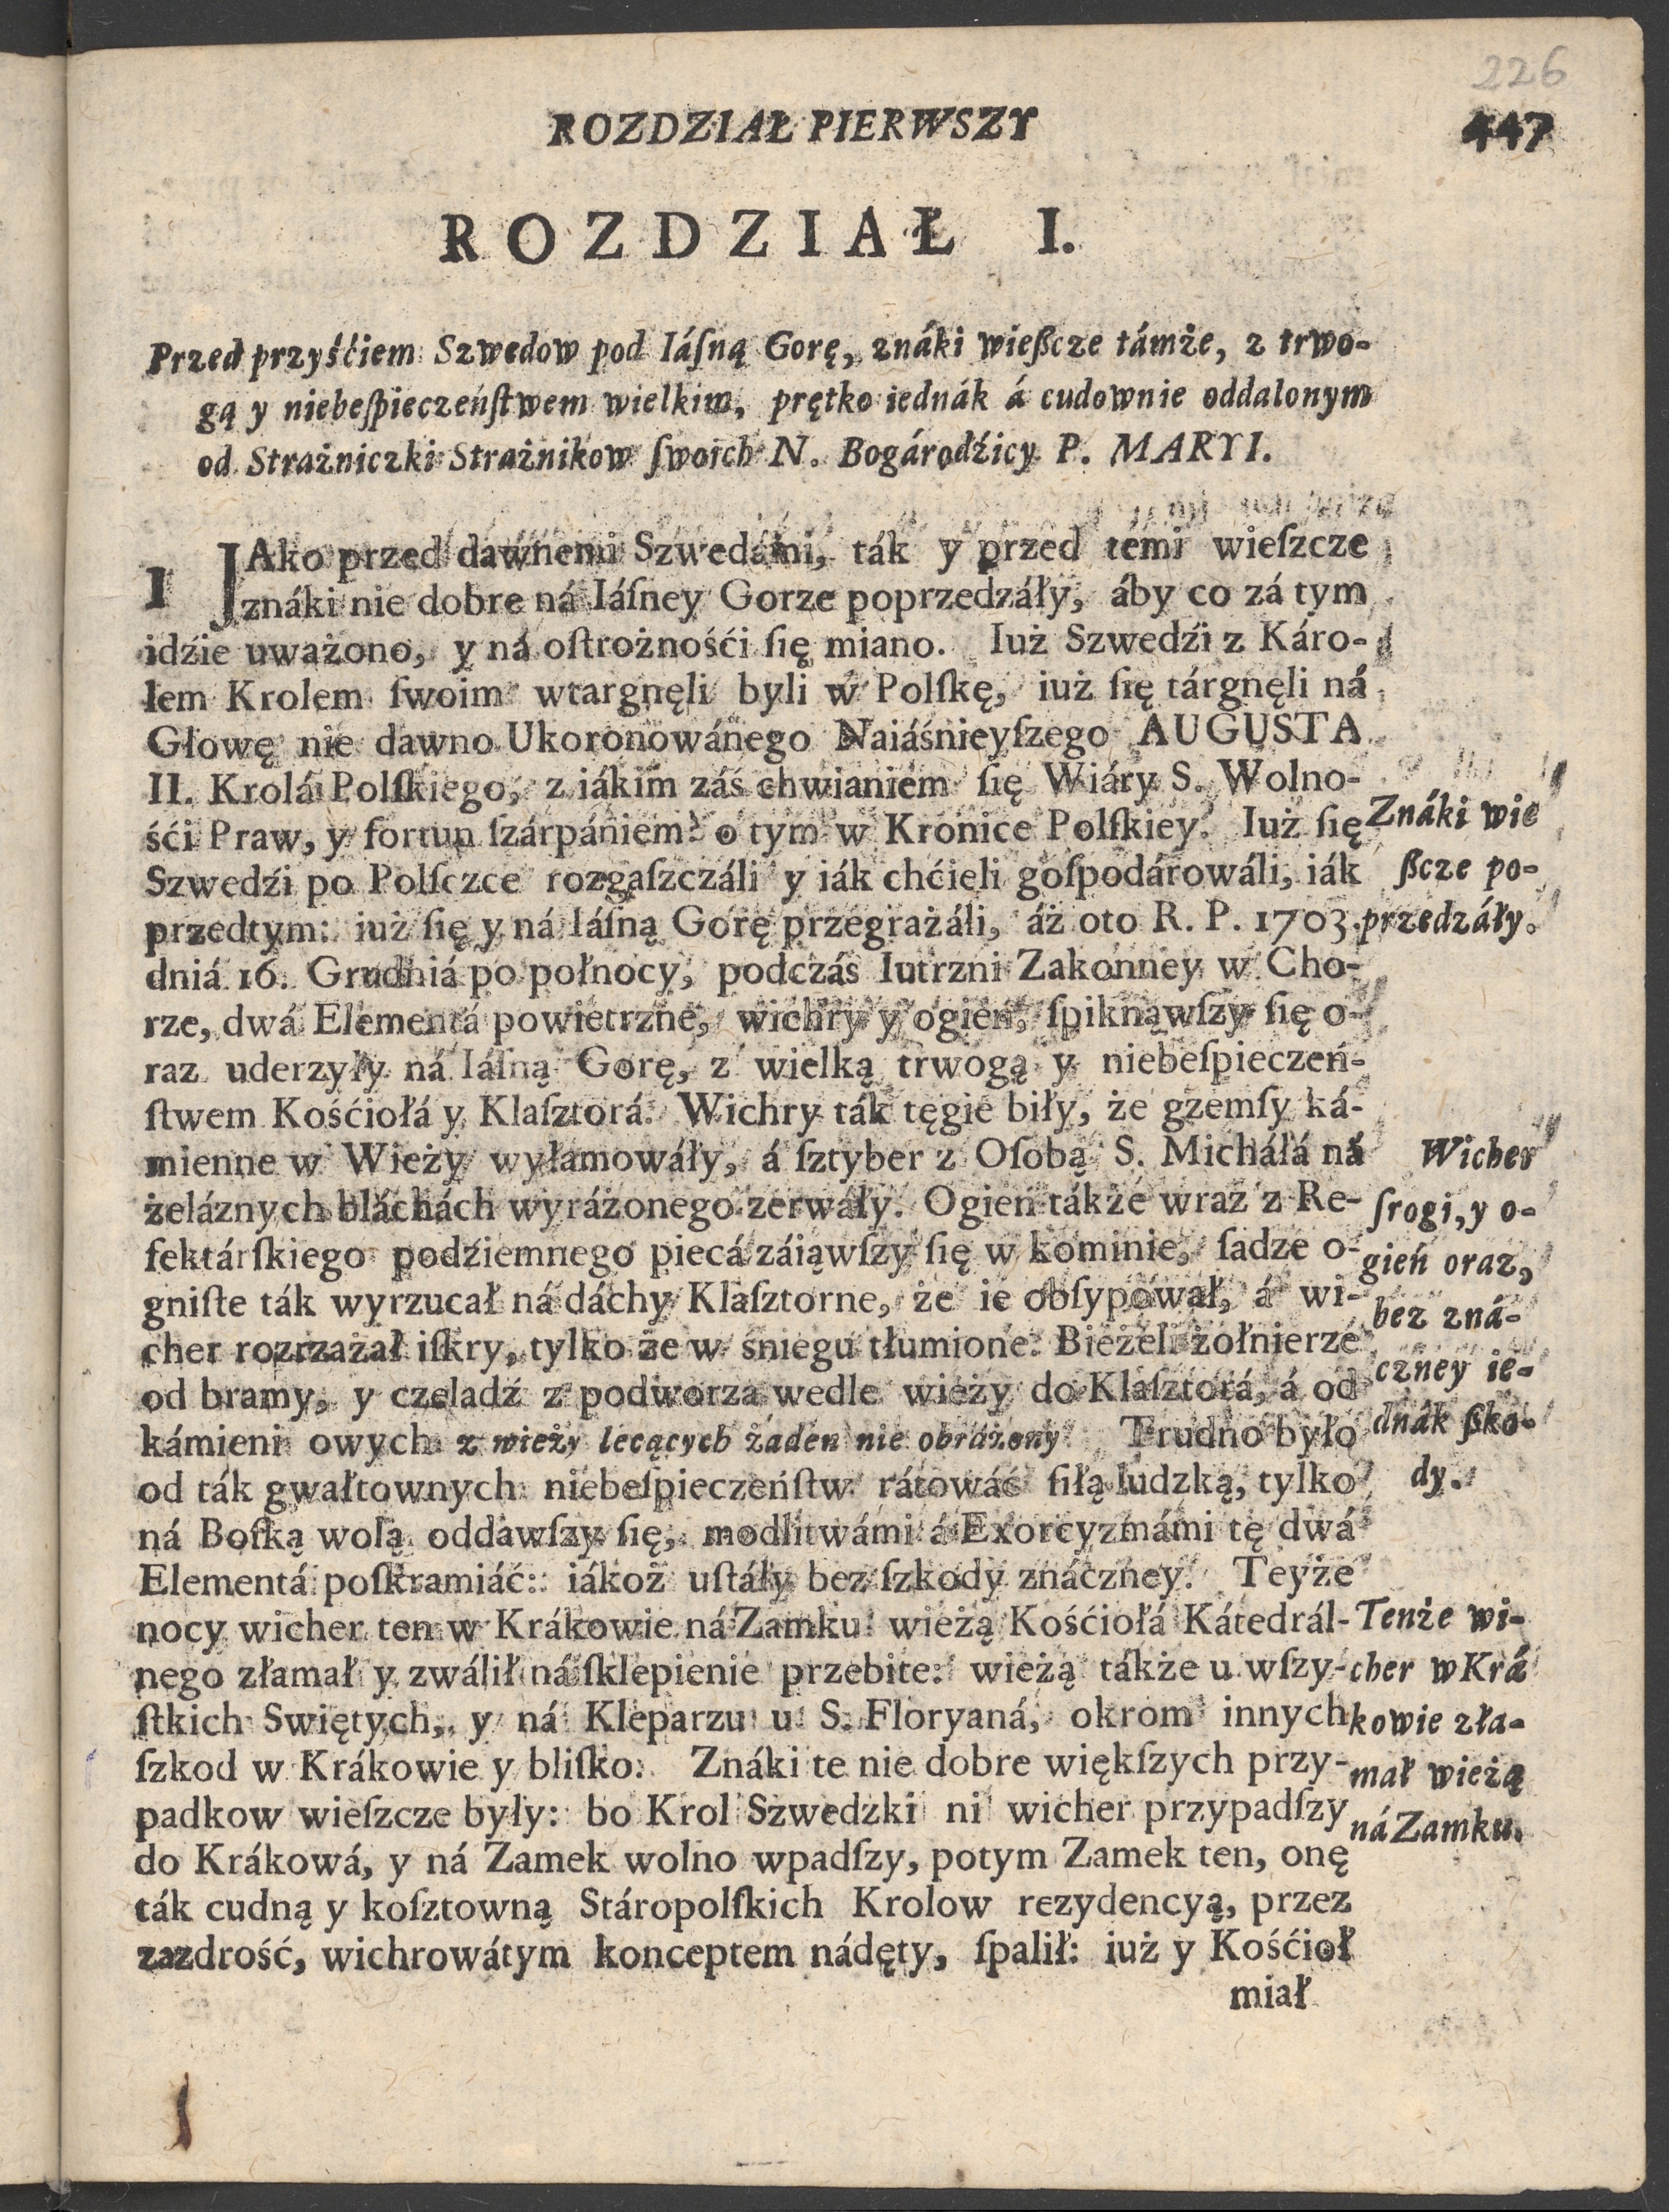 226
ROZDZIAŁ PIERWSZY 447
ROZDZIAŁ I.
Przed przyśćiem Szwedow pod Iáſną Gorę, znáki wießcze támże, z trwo-
gą y niebeſpieczeńſtwem wielkim, prętko iednák á cudownie oddalonym
od Strażniczki Strażnikow ſwoich N. Bogárodźicy P. MARYI.
1 JAko przed dawnemi Szwedámi, ták y przed temi wieſzcze
znáki nie dobre ná Iáſney Gorze poprzedzáły, áby co zá tym
idźie uważono, y ná oſtrożnośći ſię miano. Iuż Szwedźi z Káro-
lem Krolem ſwoim wtargnęli byli w Polſkę, iuż ſię tárgnęli ná
Głowę nie dawno Ukoronowánego Naiáśnieyſzego AUGUSTA
II. Krolá Polſkiego, z iákim záś chwianiem ſię Wiáry S. Wolno-
śći Praw, y fortun ſzárpániem: o tym w Kronice Polſkiey. Iuż ſię
Szwedźi po Polſczce rozgaſzczáli y iák chćieli goſpodárowáli, iák
przedtym: iuż ſię y ná Iáſną Gorę przegrażáli, áż oto R. P. 1703.
dniá 16. Grudniá po połnocy, podczás Iutrzni Zakonney w Cho-
rze, dwá Elementá powietrzne, wichry y ogień, ſpiknąwſzy ſię o-
raz uderzyły ná Iáſną Gorę, z wielką trwogą y niebeſpieczeń-
ſtwem Kośćiołá y Klaſztorá. Wichry ták tęgie biły, że gzemſy ká-
mienne w Wieży wyłamowáły, á ſztyber z Oſobą S. Micháłá ná
żeláznych bláchách wyráżonego zerwáły. Ogień tákże wraz z Re-
fektárſkiego podźiemnego piecá záiąwſzy ſię w kominie, ſadze o-
gniſte ták wyrzucał ná dáchy Klaſztorne, że ie obſypował, á wi-
cher rozrzażał iſkry, tylko że w śniegu tłumione. Bieżeli żołnierze
od bramy, y czeladź z podworza wedle wieży do Klaſztorá, á od
kámieni owych z wieży lecących żaden nie obráżony. Trudno było
od ták gwałtownych niebeſpieczeńſtw rátowáć ſiłą ludzką, tylko
ná Boſką wolą oddawſzy ſię, modlitwámi á Exorcyzmámi tę dwá
Elementá poſkramiáć: iákoż uſtáły bez ſzkody znáczney. Teyże
nocy wicher ten w Krákowie ná Zamku wieżą Kośćiołá Kátedrál-
nego złamał y zwálił ná ſklepienie przebite: wieżą tákże u wſzy-
ſtkich Swiętych, y ná Kleparzu u S. Floryaná, okrom innych
ſzkod w Krákowie y bliſko. Znáki te nie dobre więkſzych przy-
padkow wieſzcze były: bo Krol Szwedzki ni wicher przypadſzy
do Krákowá, y ná Zamek wolno wpadſzy, potym Zamek ten, onę
ták cudną y koſztowną Stáropolſkich Krolow rezydencyą, przez
zazdrość, wichrowátym konceptem nádęty, ſpalił: iuż y Kośćioł
miał
Znáki wie
ßcze po-
przedzáły.
Wicher
ſrogi, y o-
gień oraz,
bez zná-
czney ie-
dnák ßko-
dy.
Tenże wi-
cher w Krá
kowie zła-
mał wieżą
ná Zamku.